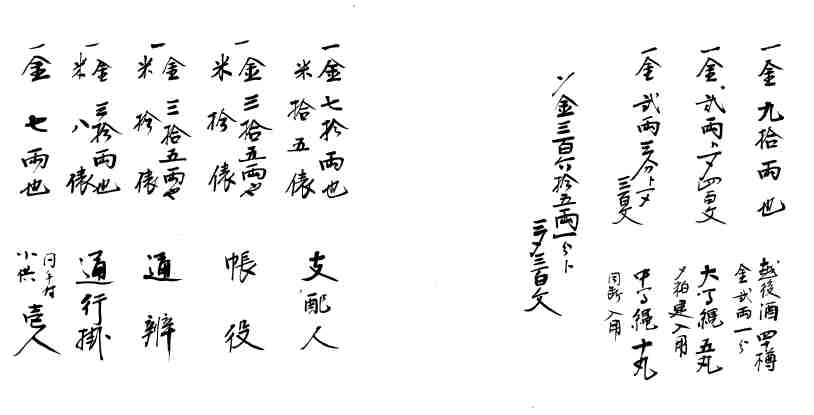 一金九拾両也 越後酒四樽
金弐両一分
一金弐両ト一〆四百文 大丁縄五丸
夕狛建入用
一金弐両三分ト一〆三百文 中丁縄十丸
同断入用
〆金三百六拾五両一分ト三〆三百文
一金七拾両也 支配人
米拾五俵
一金三拾五両也 帳役
米拾俵
一金三拾五両也 通辨
米拾俵
一金三拾両也 通行掛
米八俵
一金七両也 小供壱人